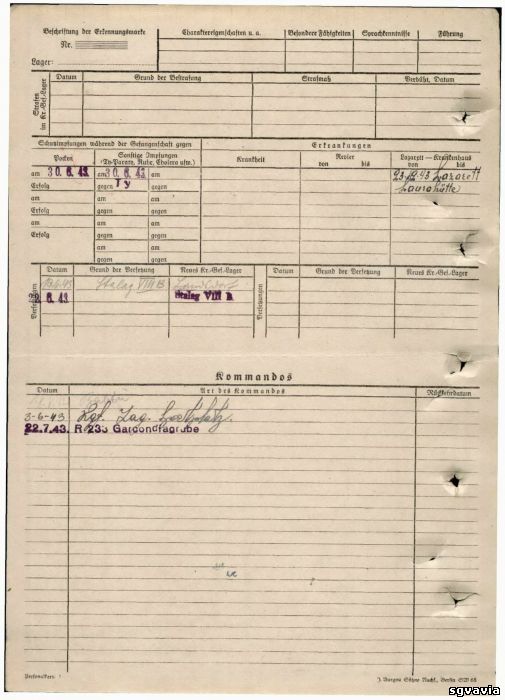 Beschriftung der Erkennungsmarke
Nr.
Lager:
Charaktereigenschaften u. a.
Besondere Fähigkeiten
Sprachkenntnisse
Führung
Strafen im Kr.-Gef.-Lager
Datum
Grund der Bestrafung
Strafmaß
Verbüßt, Datum
Schutzimpfungen während der Gefangenschaft gegen
Erkrankungen
Pocken
Sonstige Impfungen
(Ty-Paraty, Ruhr, Cholera usw.)
Krankheit
Revier
von bis
Lazarett — Krankenhaus
von bis
am 30.6.43 am 30.6.43 am
23.12.43 Lazarett
Erfolg gegen Ty gegen
Laurahütte
am am am
Erfolg gegen gegen
am am am
Erfolg gegen gegen
am am
gegen gegen
Versetzungen
Datum
Grund der Versetzung
Neues Kr.-Gef.-Lager
Datum
Grund der Versetzung
Neues Kr.-Gef.-Lager
Stalag VIII B
6.43 Stalag VIII B
Kommandos
Datum
Art des Kommandos
Rückkehrdatum
3-6-43
22.7.43. R 233
Personalkart.
J. Bargou Söhne Nachf., Berlin SW 68
sgvavia